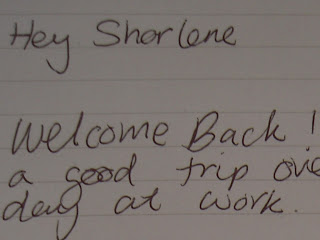 Hey Sharlene
Welcome Back !
a good trip
day at work.